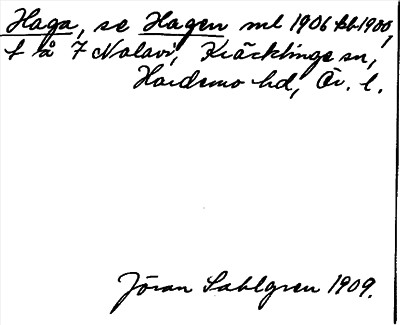 Haga, se Hagen ml 1906 kb 1900,
f å 7 Nalavi, Kräcklinge sn,
Hardemo hd, Ör. l.
Jöran Sahlgren 1909.